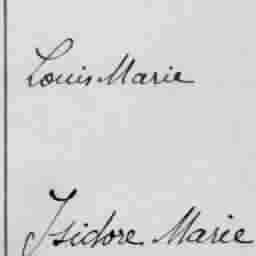 Louis Marie
Isidore Marie